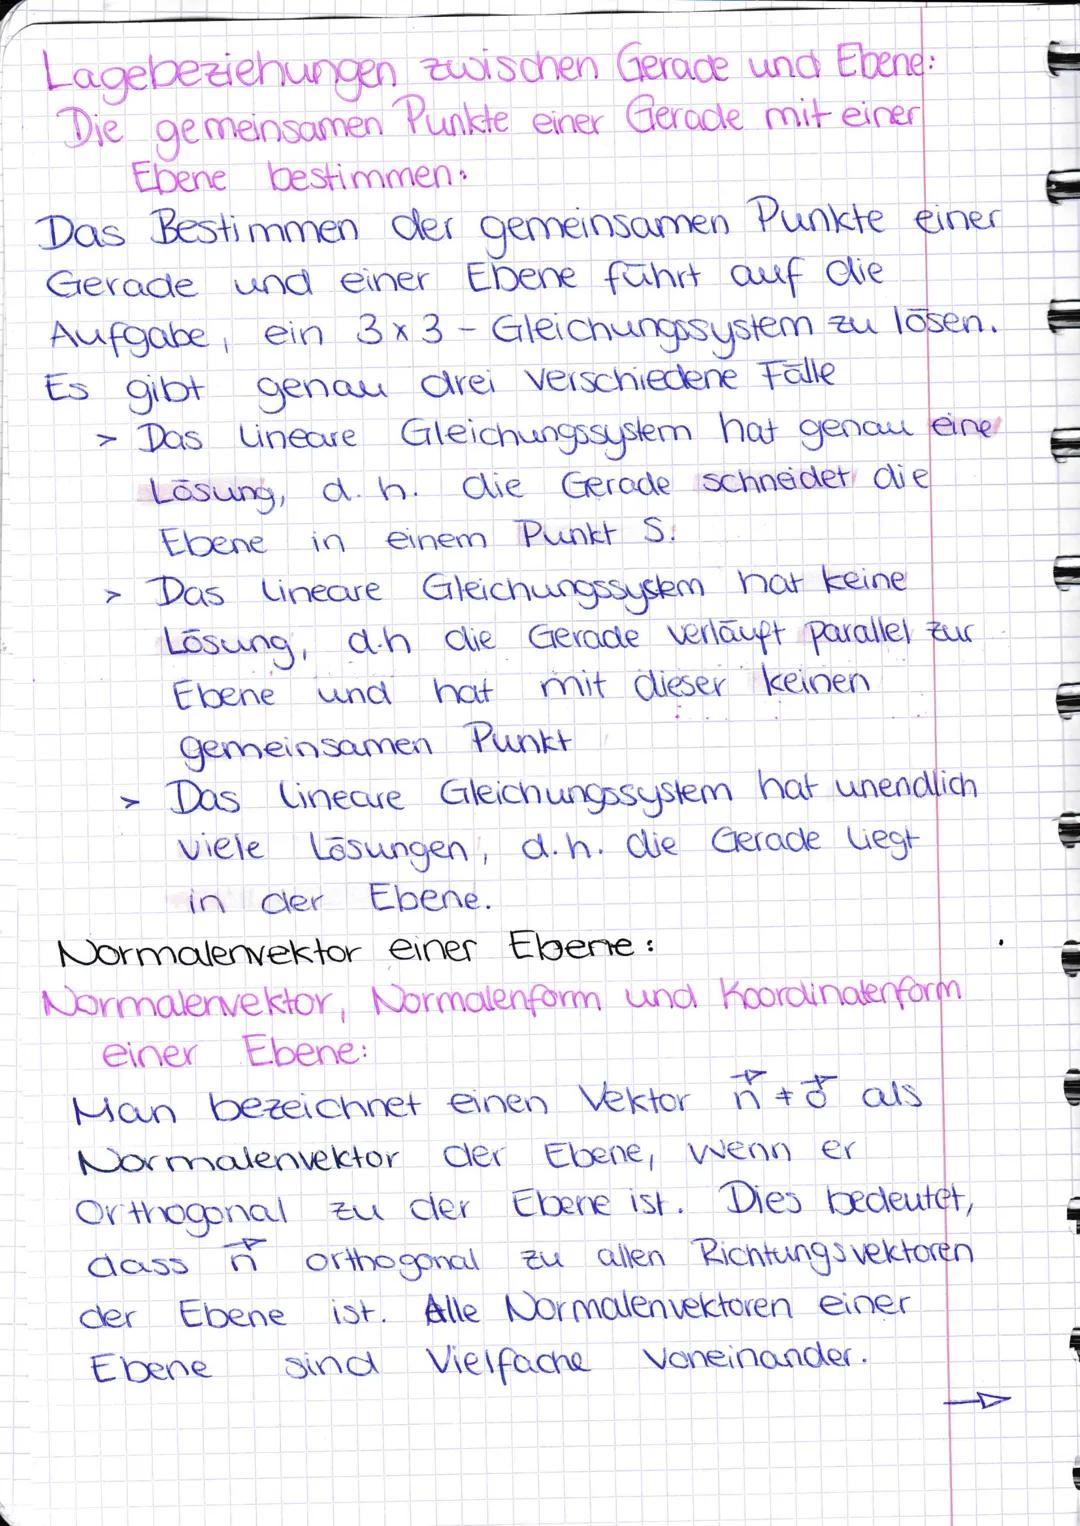 Lagebeziehungen zwischen Gerade und Ebene:
Die gemeinsamen Punkte einer Gerade mit einer
Ebene bestimmen:
Das Bestimmen der gemeinsamen Punkte einer
Gerade und einer Ebene führt auf die
Aufgabe, ein 3x3-Gleichungssystem zu lösen.
Es gibt genau drei verschiedene Fälle
> Das lineare Gleichungssystem hat genau eine
Lösung, d.h. die Gerade schneidet die
Ebene in einem Punkt S.
> Das lineare Gleichungssystem hat keine
Lösung, d.h die Gerade verläuft parallel zur
Ebene und hat mit dieser keinen
gemeinsamen Punkt
> Das lineare Gleichungssystem hat unendlich
viele Lösungen, d.h. die Gerade liegt
in der Ebene.
Normalenvektor einer Ebene:
Normalenvektor, Normalenform und Koordinatenform
einer Ebene:
Man bezeichnet einen Vektor n⃗ ≠ o⃗ als
Normalenvektor der Ebene, wenn er
Orthogonal zu der Ebene ist. Dies bedeutet,
dass n⃗ orthogonal zu allen Richtungsvektoren
der Ebene ist. Alle Normalenvektoren einer
Ebene sind Vielfache voneinander.